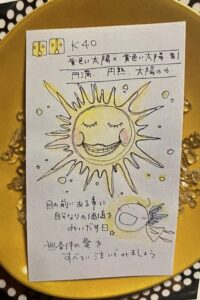 K40
黄色い太陽 × 黄色い太陽 音1
円満 円熟 太陽の力
目の前にある事に
自分なりの価値を
みいだす日
無条件の愛を
すべてに注いでみましょう